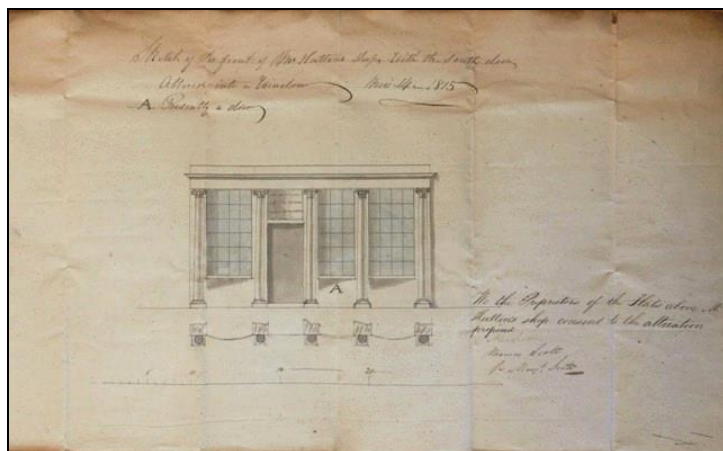 Sketch of the front of Mr Huttons Shop with the South door
Altered into a Window 1815
A Presently a door
A
We the Proprietors of the Flats above Mr
Huttons shop consent to the alteration
proposed
Scott
5
10
20